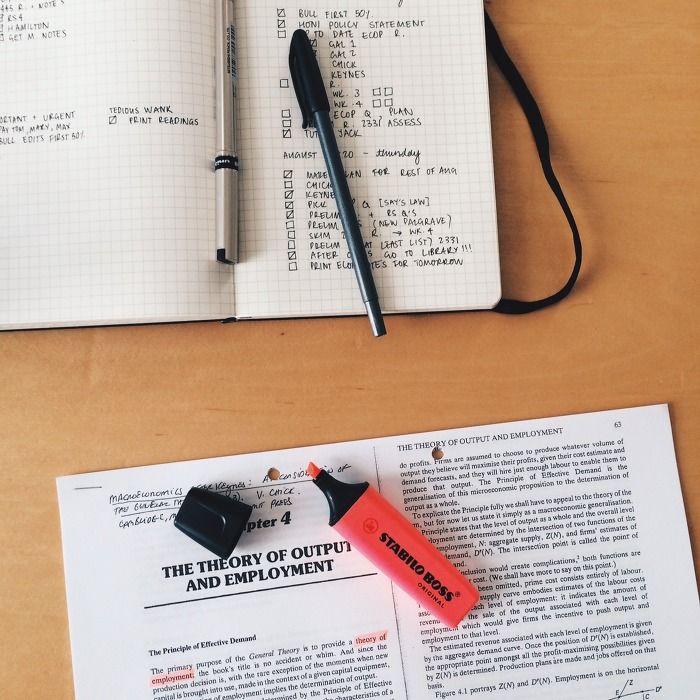 445 R. + NOTES
RS4
HAMILTON
GET M. NOTES
TEDIOUS WANK
PRINT READINGS
ORTANT + URGENT
PAY TOM, MARY, MAX
BULL EDITS FIRST 50%
BULL FIRST 50%
HONI POLICY STATEMENT
TO DATE ECOP R.
GAL 1
GAL 2
CHICK
KEYNES
R.
WK. 3
WK. 4
ECOP Q PLAN
R. 2331 ASSESS
TUT JACK
AUGUST 20 - thursday
MAKE PLAN FOR REST OF AUG
CHICK
KEYNE
PICK Q [SAY'S LAW]
PRELIM + RS Q'S
PRELIM (NEW PALGRAVE)
SKIM R. → WK. 4
PRELIM (AT LEAST LIST) 2331
AFTER GO TO LIBRARY!!!
PRINT ECO NOTES FOR TOMORROW
MACROECONOMICS KEYNES: A CONSIDERATION OF
THE GENERAL V. CHICK
PRESS
pter 4
THE THEORY OF OUTPUT
AND EMPLOYMENT
The Principle of Effective Demand
The primary purpose of the General Theory is to provide a theory of
employment; the book's title is no accident or whim. And since the
production decision is, with the rare exception of the moments when new
capital is brought into use, made in the context of a given capital equipment,
of employment implies the determination of output.
determined by the Principle of Effective
the characteristics of a
THE THEORY OF OUTPUT AND EMPLOYMENT 63
do profits. Firms are assumed to choose to produce whatever volume of
output they believe will maximise their profits, given their cost estimate and
demand forecasts, and they will hire just enough labour to enable them to
produce that output. The Principle of Effective Demand is the
generalisation of this microeconomic proposition to the determination of
output as a whole.
To explicate the Principle fully we shall have to appeal to the theory of
but for now let us state it simply as a macroeconomic generalisation.
Principle states that the level of output as a whole and the overall level
employment are determined by the intersection of two functions of the
employment, N: aggregate supply, Z(N), and firms' estimates of
demand, D'(N). The intersection point is called the point of
conclusion would create complications, both functions are
cost. (We shall have more to say on this point.)
been omitted, prime cost consists entirely of labour.
supply curve embodies estimates of the labour costs
each level of employment: it indicates the amount of
the sale of the output associated with each level of
employment which would give firms the incentive to push output and
employment to that level.
The estimated revenue associated with each level of employment is given
by the aggregate demand curve. Once the position of D'(N) is established,
the appropriate point amongst all the profit-maximising possibilities given
by Z(N) is determined. Production plans are made and jobs offered on that
basis.
Figure 4.1 portrays Z(N) and D'(N). Employment is on the horizontal
Z
C
E
D'
STABILO BOSS
ORIGINAL